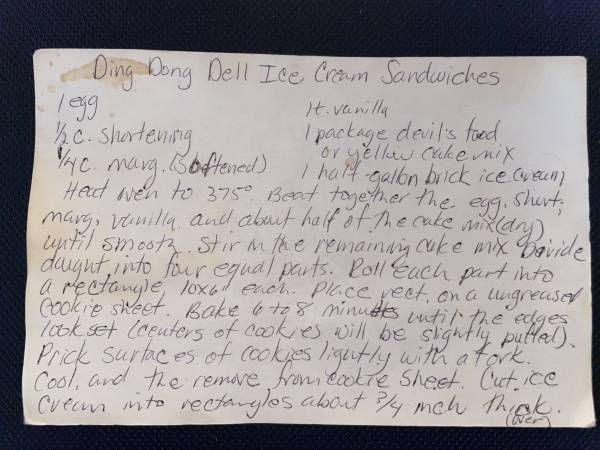 Ding Dong Dell Ice Cream Sandwiches
1 egg
1 t. vanilla
1/2 c. shortening
1 package devil's food
or yellow cake mix
1/4 c. marg. (softened)
1 half-gallon brick ice cream
Heat oven to 375°. Beat together the egg, short.,
marg, vanilla and about half of the cake mix (dry)
until smooth. Stir in the remaining cake mix. Divide
daught into four equal parts. Roll each part into
a rectangle, 10x6" each. Place rect. on a ungreased
cookie sheet. Bake 6 to 8 minutes until the edges
look set (centers of cookies will be slightly puffed).
Prick surfaces of cookies lightly with a fork.
Cool, and the remove from cookie sheet. Cut ice
cream into rectangles about 3/4 inch thick.
(over)